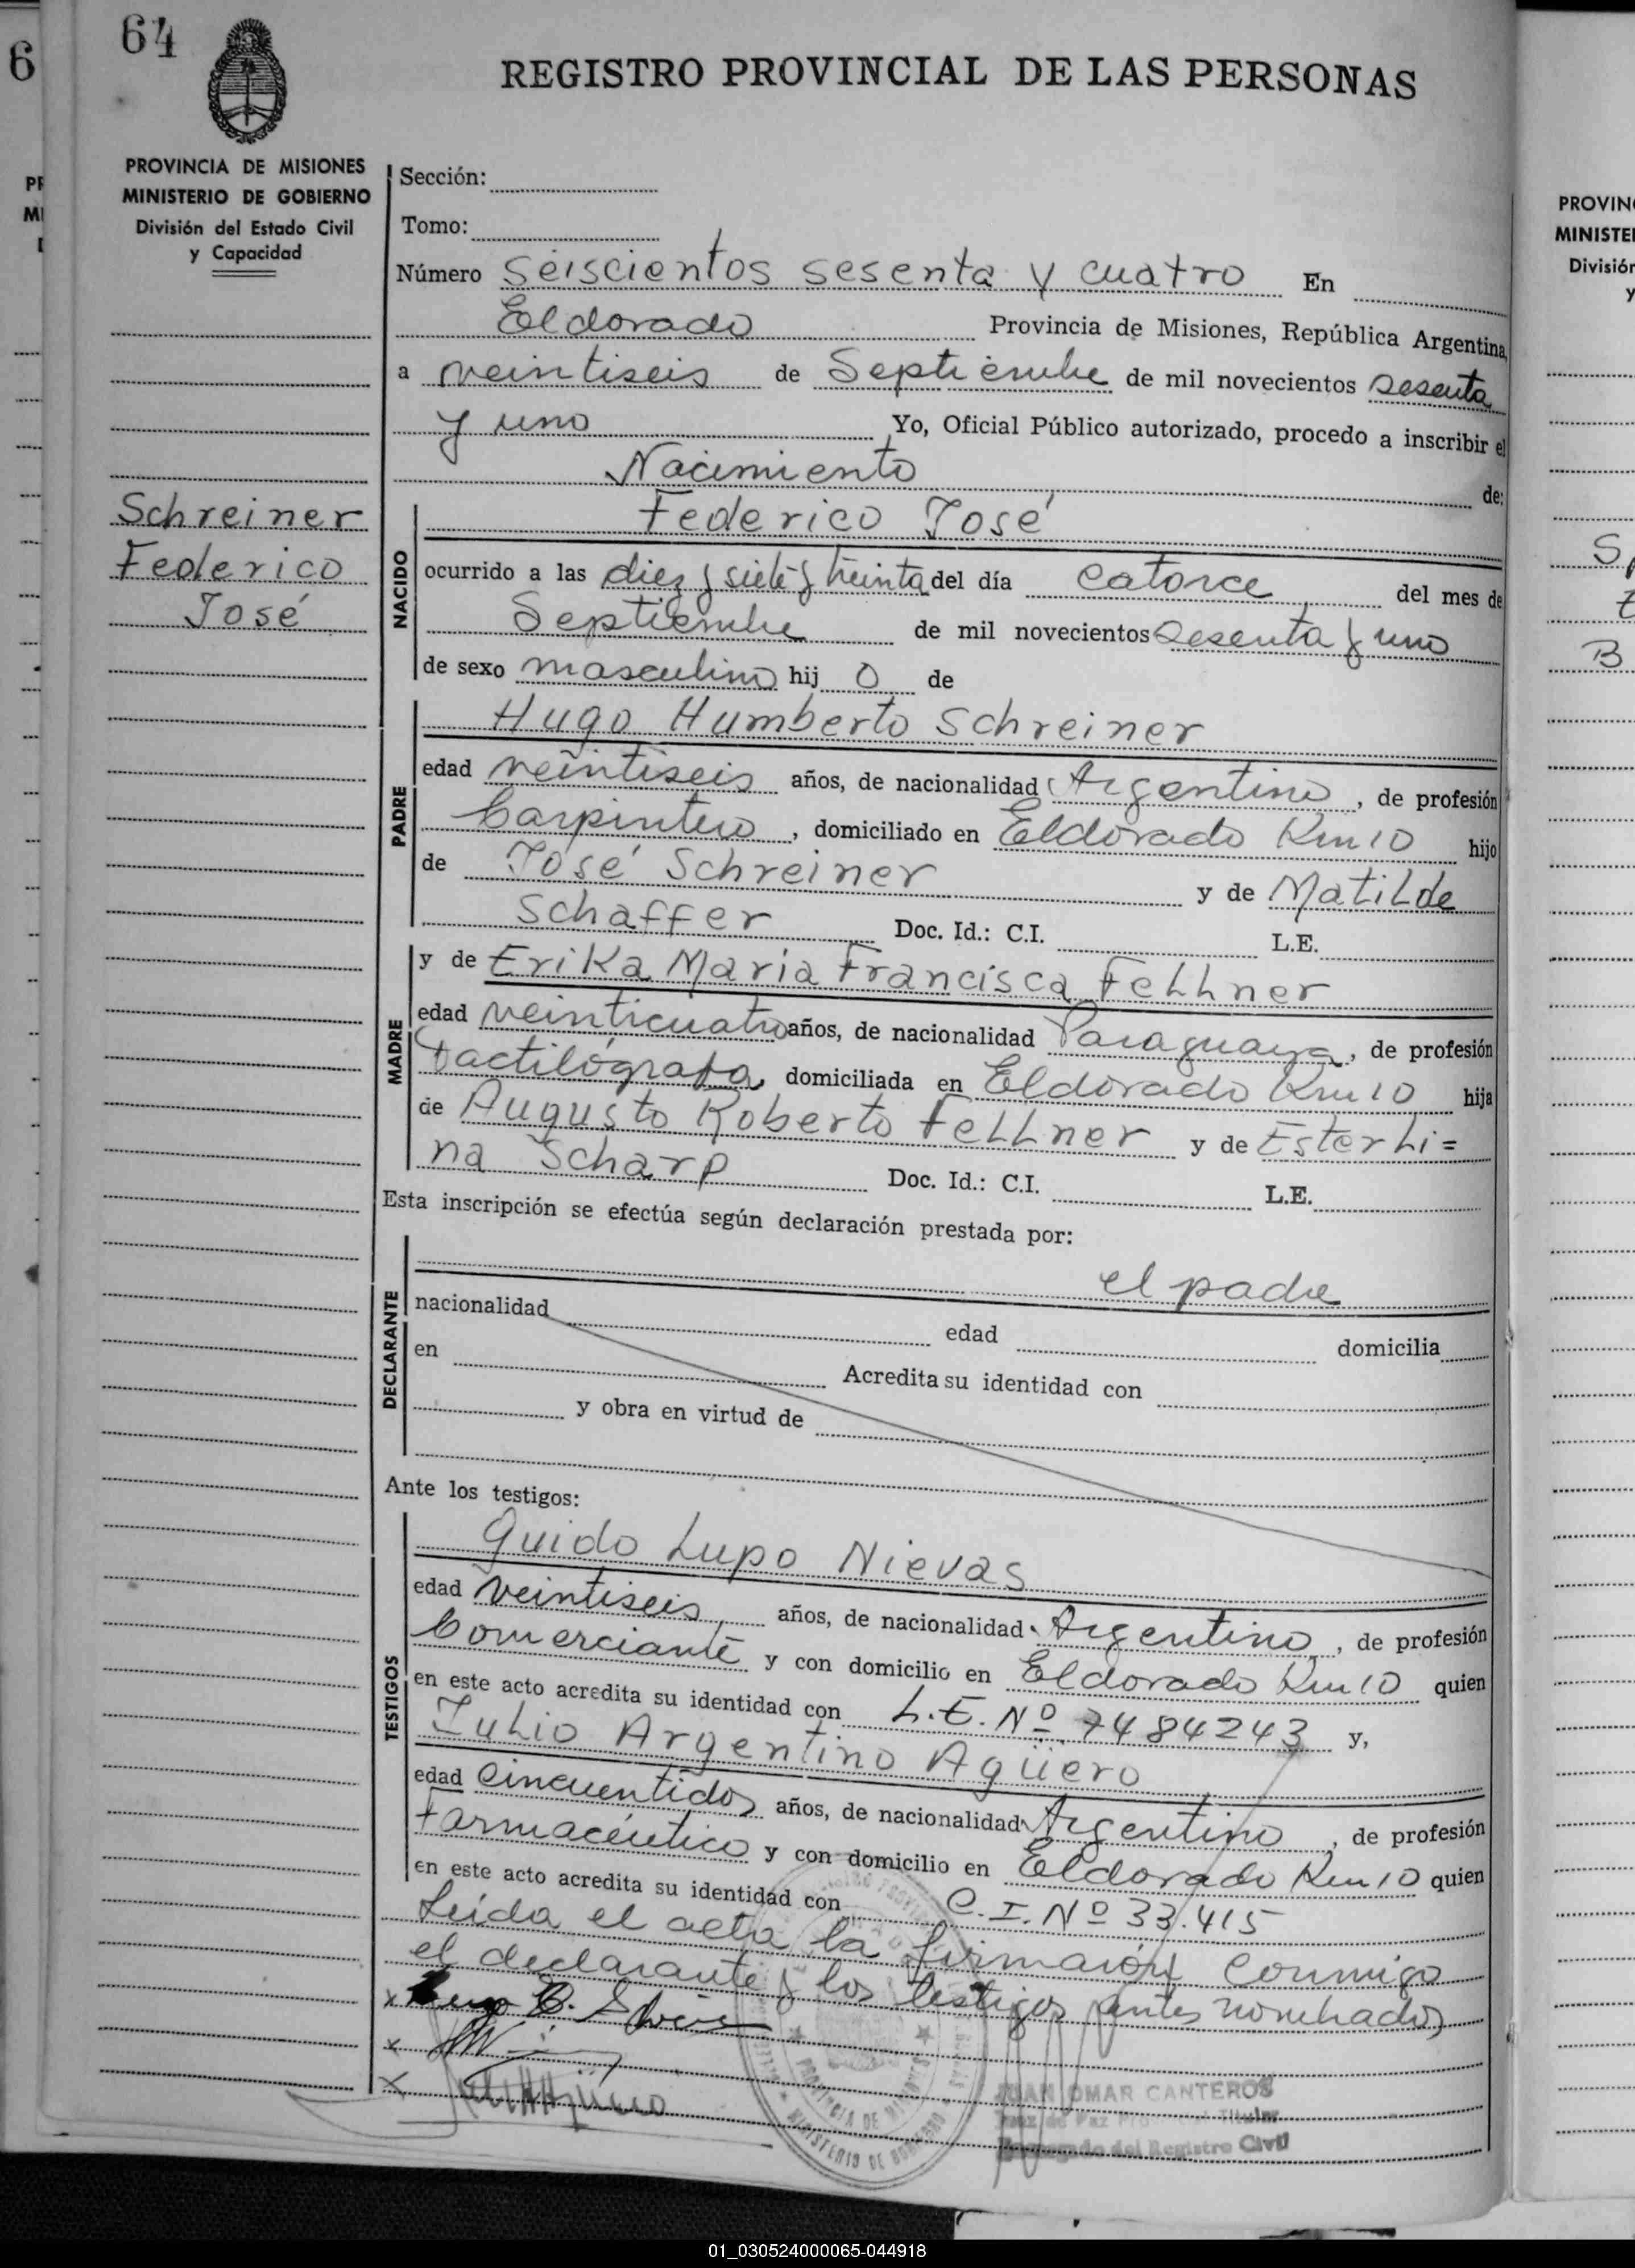 64
REGISTRO PROVINCIAL DE LAS PERSONAS
PROVINCIA DE MISIONES
MINISTERIO DE GOBIERNO
División del Estado Civil
y Capacidad
Schreiner
Federico
José
Sección:
Tomo:
Número seiscientos sesenta y cuatro En
Eldorado Provincia de Misiones, República Argentina,
a veintiseis de Septiembre de mil novecientos sesenta
y uno Yo, Oficial Público autorizado, procedo a inscribir el
Nacimiento de:
Federico José
NACIDO
ocurrido a las diez y siete y treinta del día catorce del mes de
Septiembre de mil novecientos sesenta y uno
de sexo masculino hij o de
Hugo Humberto Schreiner
PADRE
edad veintiseis años, de nacionalidad Argentino, de profesión
Carpintero, domiciliado en Eldorado Km 10 hijo
de José Schreiner y de Matilde
Schaffer Doc. Id.: C.I. L.E.
MADRE
y de Erika Maria Francisca Fellner
edad veinticuatro años, de nacionalidad Paraguaya, de profesión
Dactilógrafa, domiciliada en Eldorado Km 10 hija
de Augusto Roberto Fellner y de Ester Li=
na Scharp Doc. Id.: C.I. L.E.
Esta inscripción se efectúa según declaración prestada por:
el padre
DECLARANTE
nacionalidad edad domicilia
en Acredita su identidad con
y obra en virtud de
Ante los testigos:
Guido Lupo Nievas
TESTIGOS
edad veintiseis años, de nacionalidad Argentino, de profesión
Comerciante y con domicilio en Eldorado Km 10 quien
en este acto acredita su identidad con L.E. Nº 7484243 y,
Julio Argentino Agüero
edad cincuentidos años, de nacionalidad Argentino, de profesión
Farmacéutico y con domicilio en Eldorado Km 10 quien
en este acto acredita su identidad con C.I. Nº 33.415
Leida el acta la firmaron conmigo
el declarante y los testigos antes nombrados
JUAN OMAR CANTEROS
Juez de Paz Titular
Encargado del Registro Civil
PROVINCIA DE MISIONES
MINISTERIO DE GOBIERNO
01_030524000065-044918